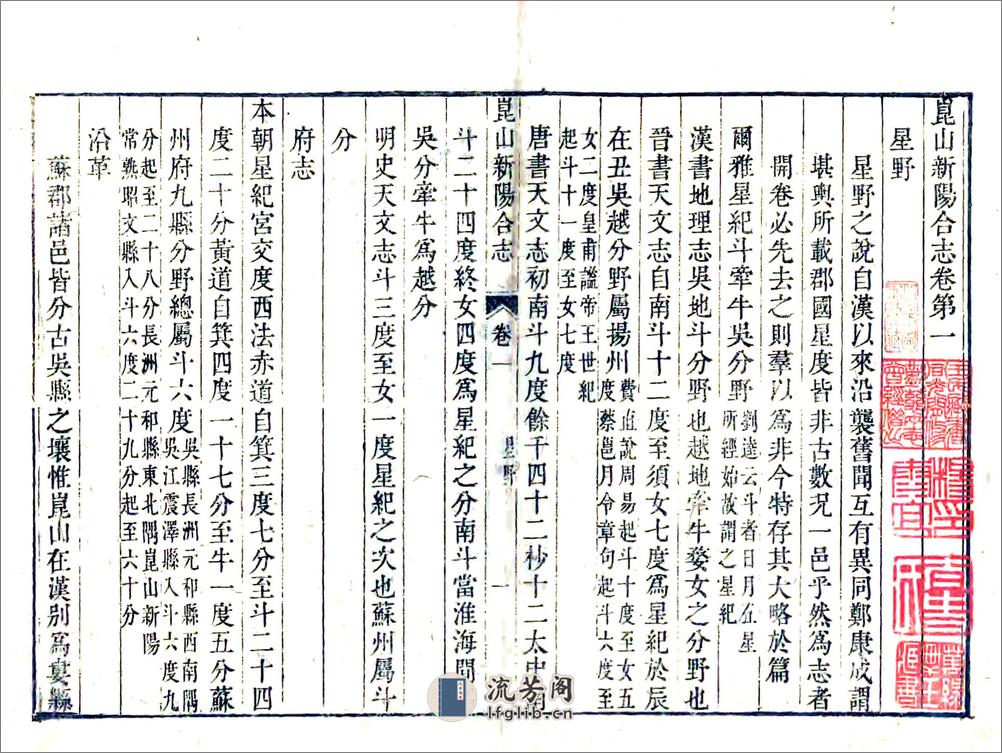 崑山新陽合志卷第一
星野
星野之說自漢以來沿襲舊聞互有異同鄭康成謂
堪輿所載郡國星度皆非古數况一邑乎然爲志者
開卷必先去之則羣以爲非今特存其大略於篇
爾雅星紀斗牽牛吳分野劉逵云斗者日月五星
所經始故謂之星紀
漢書地理志吳地斗分野也越地牽牛婺女之分野也
晉書天文志自南斗十二度至須女七度爲星紀於辰
在丑吳越分野屬揚州費直說周易起斗十度至女五
度蔡邕月令章句起斗六度至
女二度皇甫謐帝王世紀
起斗十一度至女七度
唐書天文志初南斗九度餘千四十二秒十二太史南
崑山新陽合志
卷一
星野
一
斗二十四度終女四度爲星紀之分南斗當淮海間
吳分牽牛爲越分
明史天文志斗三度至女一度星紀之次也蘇州屬斗
分
府志
本朝星紀宮交度西法赤道自箕三度七分至斗二十四
度二十分黃道自箕四度一十七分至牛一度五分蘇
州府九縣分野總屬斗六度吳縣長洲元和縣西南隅
吳江震澤縣入斗六度九
分起至二十八分長洲元和縣東北隅崑山新陽
常熟昭文縣入斗六度二十九分起至六十分
沿革
蘇郡諸邑皆分古吳縣之壤惟崑山在漢別爲婁縣
流芳阁
lfglib.cn